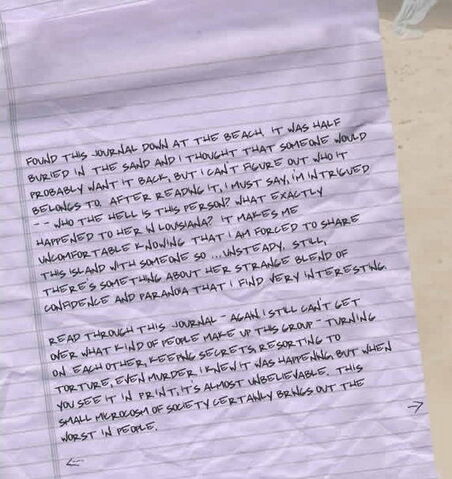 FOUND THIS JOURNAL DOWN AT THE BEACH. IT WAS HALF
BURIED IN THE SAND AND I THOUGHT THAT SOMEONE WOULD
PROBABLY WANT IT BACK, BUT I CAN'T FIGURE OUT WHO IT
BELONGS TO. AFTER READING IT, I MUST SAY, I'M INTRIGUED
-- WHO THE HELL IS THIS PERSON? WHAT EXACTLY
HAPPENED TO HER IN LOUSIANA? IT MAKES ME
UNCOMFORTABLE KNOWING THAT I AM FORCED TO SHARE
THIS ISLAND WITH SOMEONE SO ...UNSTEADY. STILL,
THERE'S SOMETHING ABOUT HER STRANGE BLEND OF
CONFIDENCE AND PARANOIA THAT I FIND VERY INTERESTING.
READ THROUGH THIS JOURNAL - AGAIN. I STILL CAN'T GET
OVER WHAT KIND OF PEOPLE MAKE UP THIS GROUP - TURNING
ON EACH OTHER, KEEPING SECRETS, RESORTING TO
TORTURE, EVEN MURDER. I KNEW IT WAS HAPPENING, BUT WHEN
YOU SEE IT IN PRINT, IT'S ALMOST UNBELIEVABLE. THIS
SMALL MICROCOSM OF SOCIETY CERTAINLY BRINGS OUT THE
WORST IN PEOPLE.